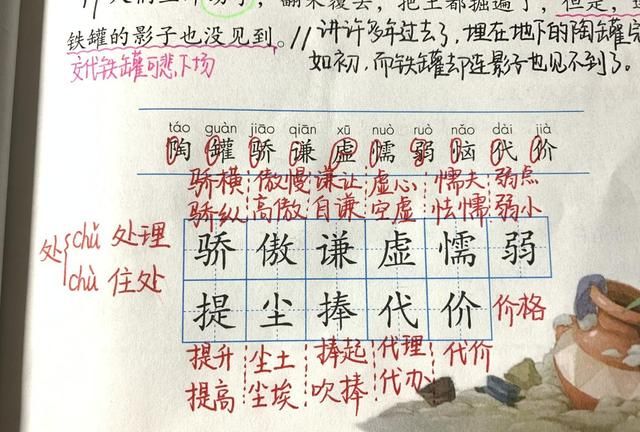 翻来覆去，把土都掘遍了，但是，连
铁罐的影子也没见到。//讲许多年过去了，埋在地下的陶罐完
交代铁罐可悲下场 如初，而铁罐却连影子也见不到了。
táo guàn jiāo qiān xū nuò ruò nǎo dài jià
陶 罐 骄 谦 虚 懦 弱 恼 代 价
骄横 傲慢 谦让 虚心 懦夫 弱点
骄纵 高傲 自谦 空虚 怯懦 弱小
处 chǔ 处理
chù 住处
骄 傲 谦 虚 懦 弱
提 尘 捧 代 价 价格
提升 尘土 捧起 代理 代价
提高 尘埃 吹捧 代办